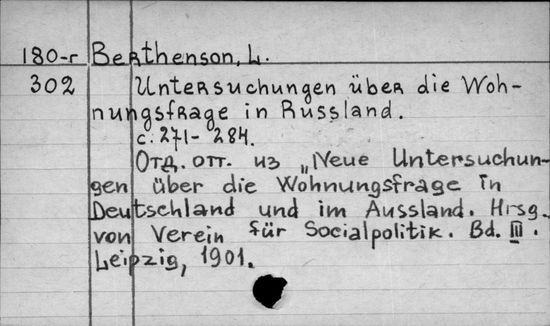 180-r Berthenson, L.
302 Untersuchungen über die Woh-
nungsfrage in Russland.
с. 271-284.
Отд. отт. из „Neue Untersuchun-
gen über die Wohnungsfrage in
Deutschland und im Aussland. Hrsg.
von Verein für Socialpolitik. Bd. III.
Leipzig, 1901.